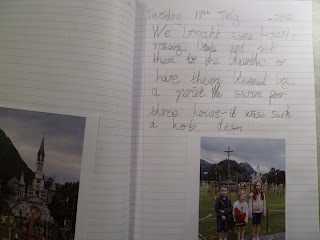 Tuesday 17th July
We bought some
rosary beads and took
them to the church to
have them blessed by
a priest. We swam for
three hours - it was such
a hot day